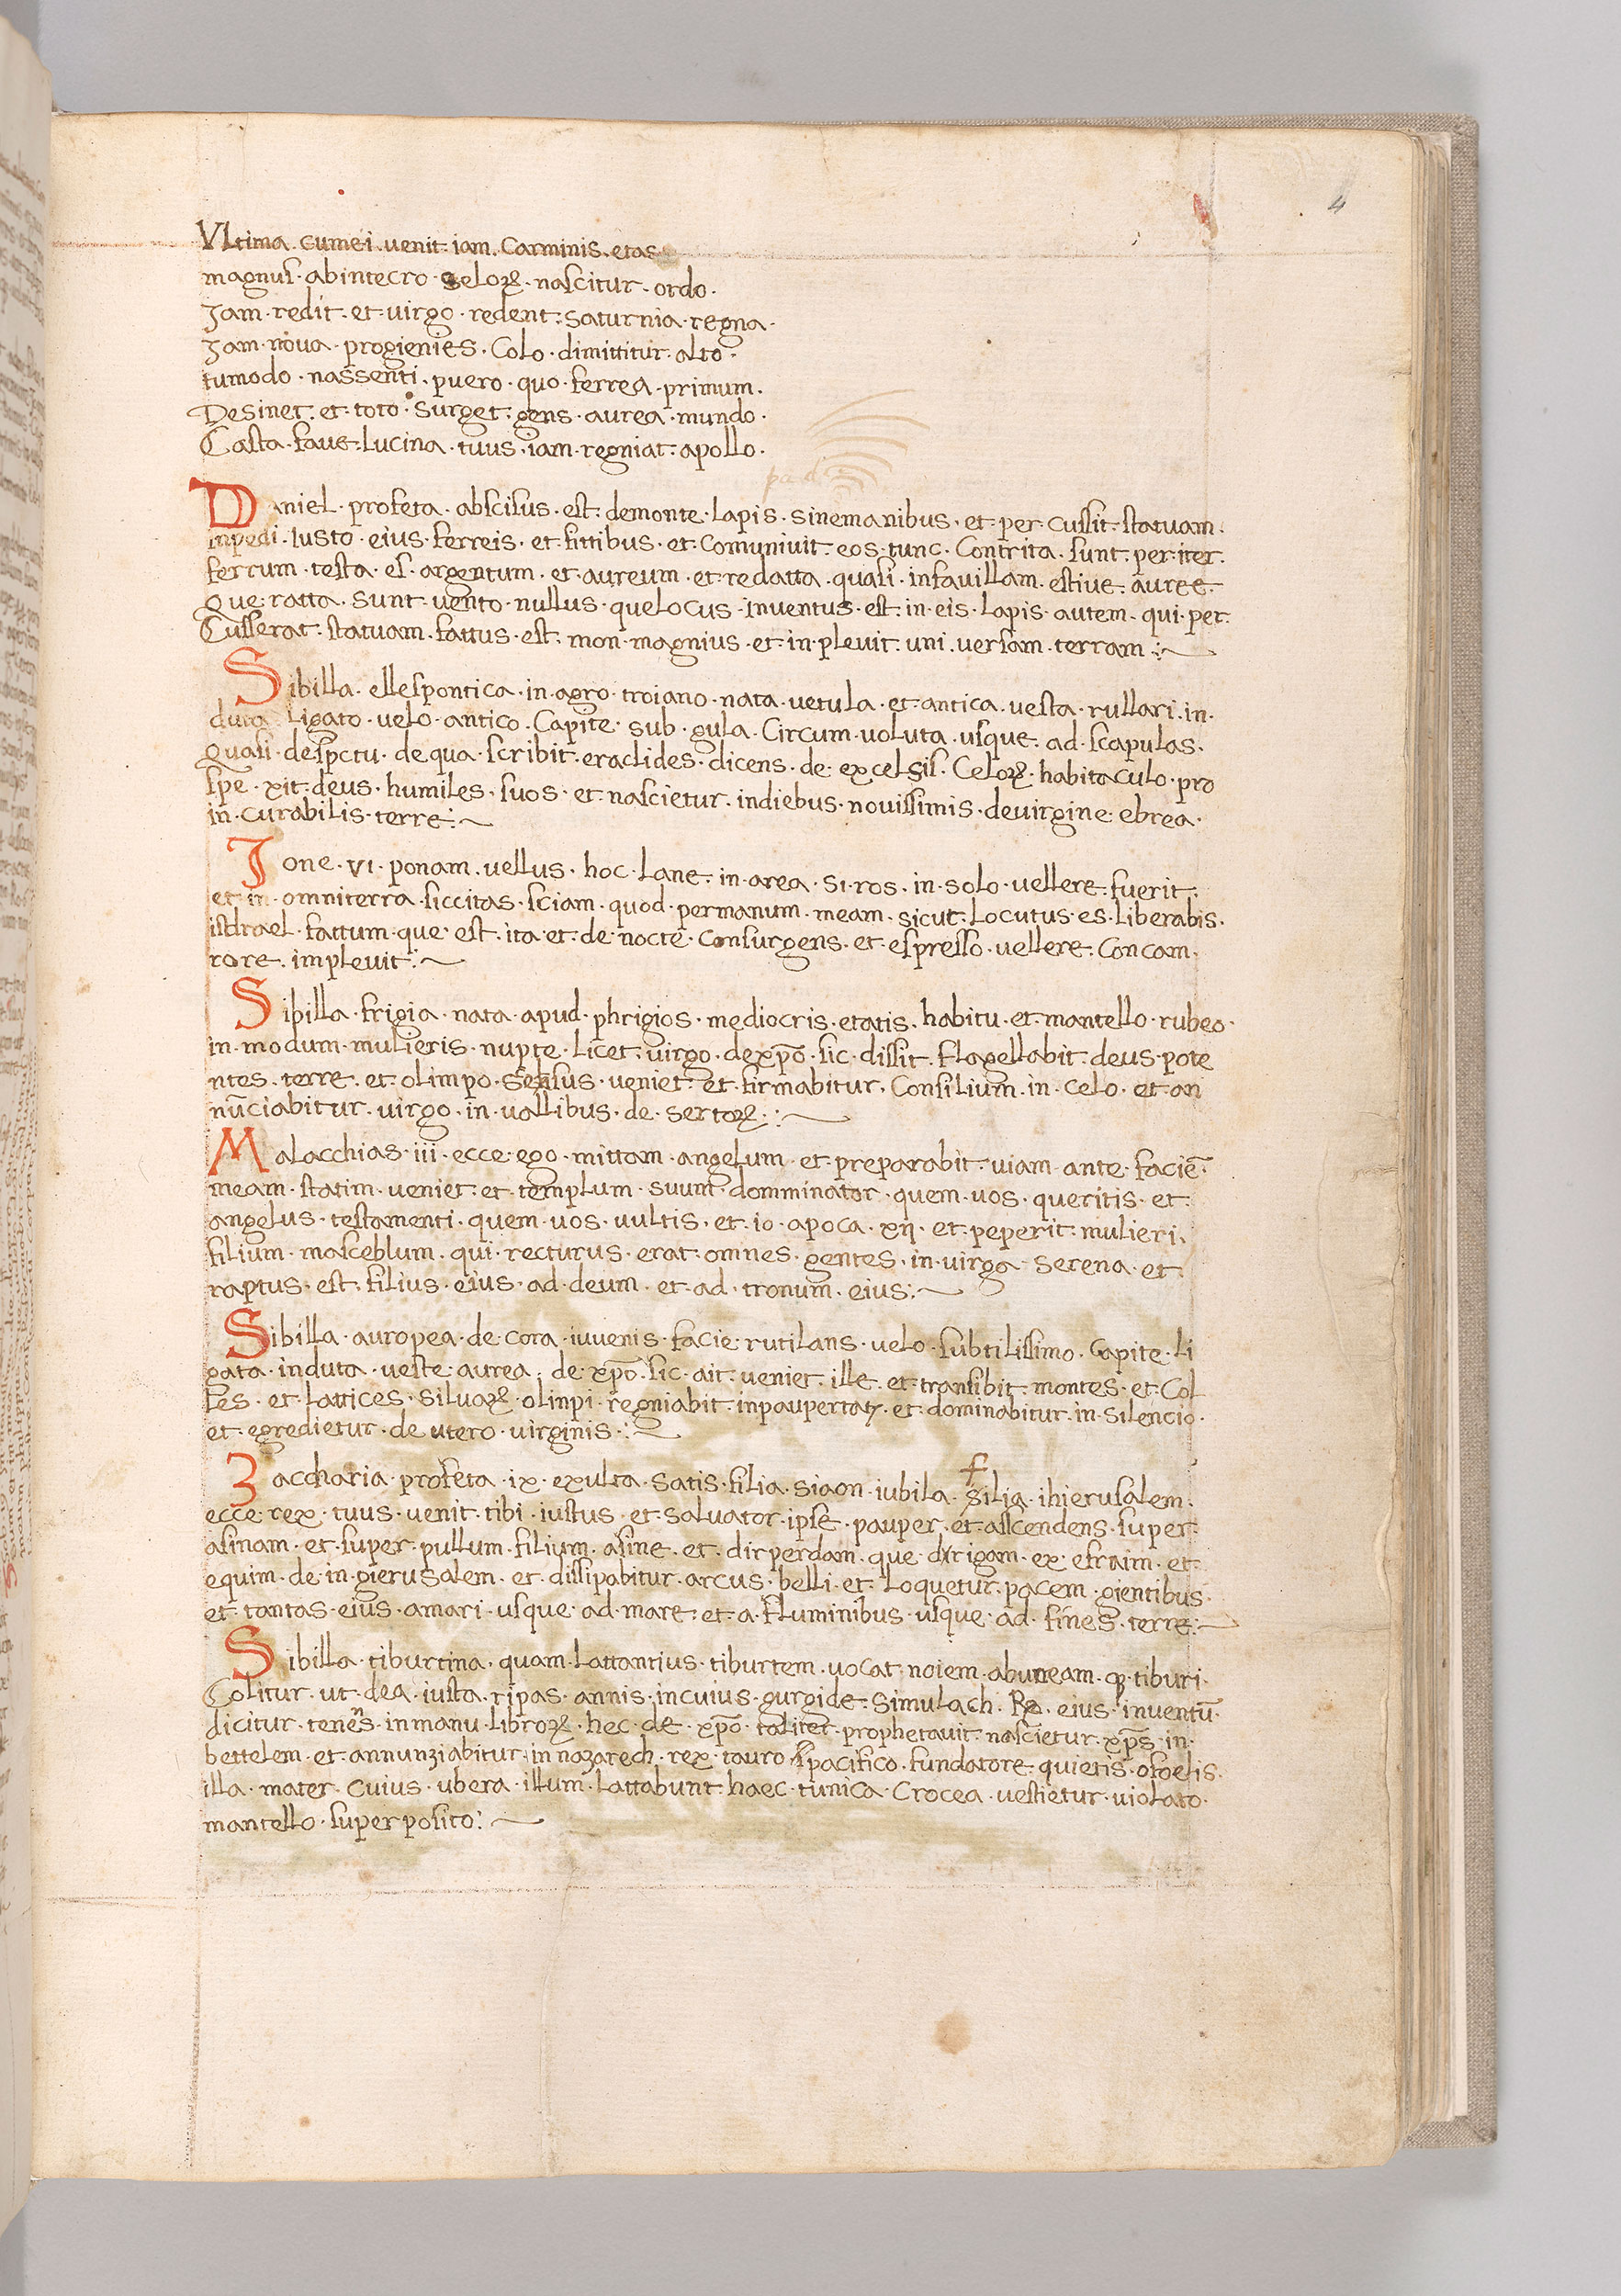 4
Vltima · cumei · venit · iam · Carminis · etas
magnus · abintecro · seloꝝ · nascitur · ordo ·
Jam · redit · et · virgo · redent · saturnia · regna ·
Jam · nova · progienies · Colo · dimittitur · alto ·
tumodo · nassenti · puero · quo · ferrea · primum ·
Desinet · et · toto · surget · gens · aurea · mundo ·
Casta · fave · lucina · tuus · iam · regniat · apollo ·
Daniel · profeta · abscisus · est · demonte · lapis · sinemanibus · et · per · cussit · statuam ·
inpedi · iusto · eius · ferreis · et · fittibus · et · Comunivit · eos · tunc · Contrita · sunt · per · iter ·
ferrum · testa · es · argentum · et · aureum · et · redatta · quasi · infavillam · estive · auree ·
que · ratta · sunt · vento · nullus · quelocus · inventus · est · in · eis · lapis · autem · qui · per ·
Cusserat · statuam · fattus · est · mon · magnius · et · in · plevit · uni · versam · terram :~
Sibilla · ellespontica · in · agro · troiano · nata · vetula · et · antica · vesta · rullari · in ·
duta · ligato · velo · antico · Capite · sub · gula · Circum · voluta · usque · ad · scapulas ·
quasi · despctu · de qua · scribit · eraclides · dicens · de · excelsis · Celoꝝ · habitaculo · pro
spe · xit · deus · humiles · suos · et · nascietur · indiebus · novissimis · devirgine · ebrea ·
in · curabilis · terre :~
Jone · VI · ponam · vellus · hoc · lane · in · area · si · ros · in · solo · vellere · fuerit ·
et · in · omniterra · siccitas · sciam · quod · permanum · meam · sicut · locutus · es · liberabis ·
isdrael · fattum · que · est · ita · et · de · nocte · consurgens · et · espresso · vellere · Concam ·
rore · implevit :~
Sibilla · frigia · nata · apud · phrigios · mediocris · etatis · habitu · et · mantello · rubeo ·
in · modum · mulieris · nupte · licet · virgo · dexp̄o · sic · dissit · flagellabit · deus · pote
ntes · terre · et · olimpo · sensus · veniet · et · firmabitur · Consilium · in · celo · et · an
nūciabitur · virgo · in · vallibus · de · sertoꝝ :~
Malacchias · iii · ecce · ego · mittam · angelum · et · preparabit · viam · ante · faciē ·
meam · statim · veniet · et · templum · suunt · domminator · quem · vos · queritis · et ·
angelus · testamenti · quem · vos · vultis · et · io · apoca · xij · et · peperit · mulieri ·
filium · masceblum · qui · recturus · erat · omnes · gentes · in · virga · serena · et ·
raptus · est · filius · eius · ad · deum · et · ad · tronum · eius :~
Sibilla · auropea · de · cora · iuvenis · facie · rutilans · velo · subtilissimo · Capite · li
gata · induta · veste · aurea · de · xp̄o · sic · ait · veniet · ille · et · transibit · montes · et · Col
les · et · lattices · silvaꝝ · olinpi · regniabit · inpaupertatꝫ · et · dominabitur · in · silencio ·
et · egredietur · de utero · virginis :~
Zaccharia · profeta · ix · exulta · satis · filia · siaon · iubila · filia · ihierusalem ·
ecce · rex · tuus · venit · tibi · iustus · et · salvator · ipse · pauper · et · asscendens · super ·
asinam · et · super · pullum · filium · asine · et · dirperdam · que · dxrigam · ex · efraim · et ·
equim · de · in · gierusalem · et · dissipabitur · arcus · belli · et · loquetur · pacem · gientibus ·
et · tantas · eius · amari · usque · ad · mare · et · a · fluminibus · usque · ad · fines · terre :~
Sibilla · tiburtina · quam · lattantius · tiburtem · vocat · noiem · aburneam · ꝙ · tiburi ·
Colitur · ut · dea · iusta · ripas · annis · incuius · gurgide · simulach · Ra · eius · inventū ·
dicitur · tenens · inmanu · libroꝝ · hec · de · xp̄o · taliter · prophetavit · nascietur · xp̄s · in ·
bettelem · et · annunziabitur · in nazarech · rex · tauro · pacifico · fundatore · quietis · ofoelis ·
illa · mater · cuius · ubera · illum · lattabunt · haec · tunica · Crocea · vestietur · violato ·
mantello · superposito :~